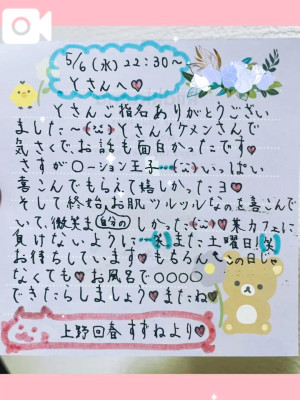 5/6(水)22:30〜
Yさんへ♥
Yさんご指名ありがとうござい
ました〜(･･)Yさんイケメンさんで
気さくで、お話も面白かったです♥
さすが〇ーション王子…(･･)いっぱい
喜こんでもらえて嬉しかったヨ♥
そして終始、お肌ツルツルなのを喜こんで
いて、微笑ま(自分の)しかった(･･)♥某カフェに
負けないように…(笑)また土曜日(笑)
お待ちしています♥もちろんこの日じゃ
なくても♥お風呂で〇〇〇〇
できたらしましょう♥またね♥
上野回春 すずねより♥